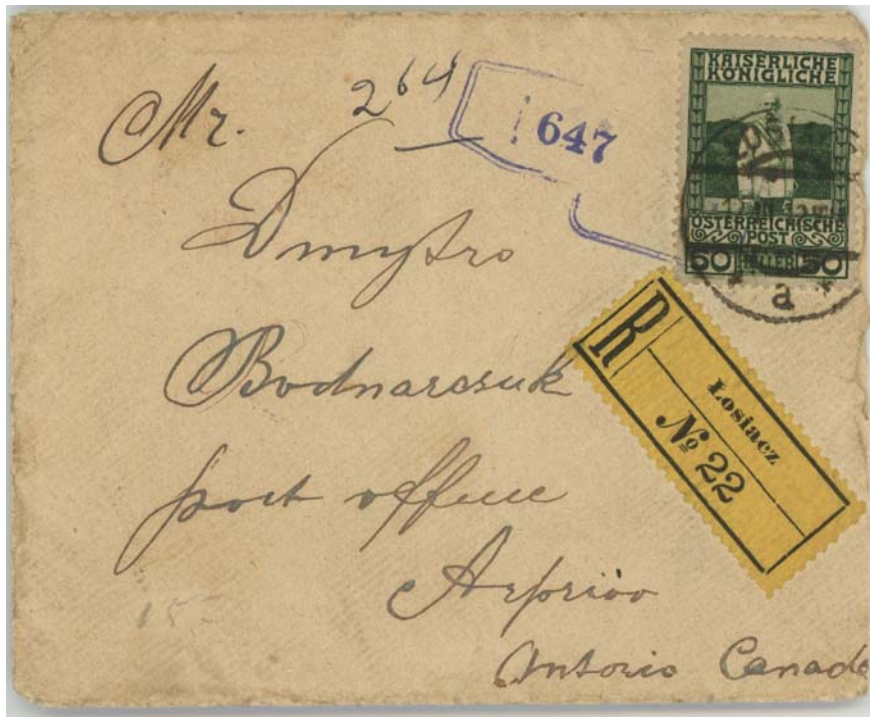 Mr. 264
647
KAISERLICHE
KÖNIGLICHE
ÖSTERREICHISCHE
POST
60 HELLER 60
a
Dmytro
Bodnarczuk
R Łosiacz
№ 22
post office
Arprior
Antorio Canade
15-